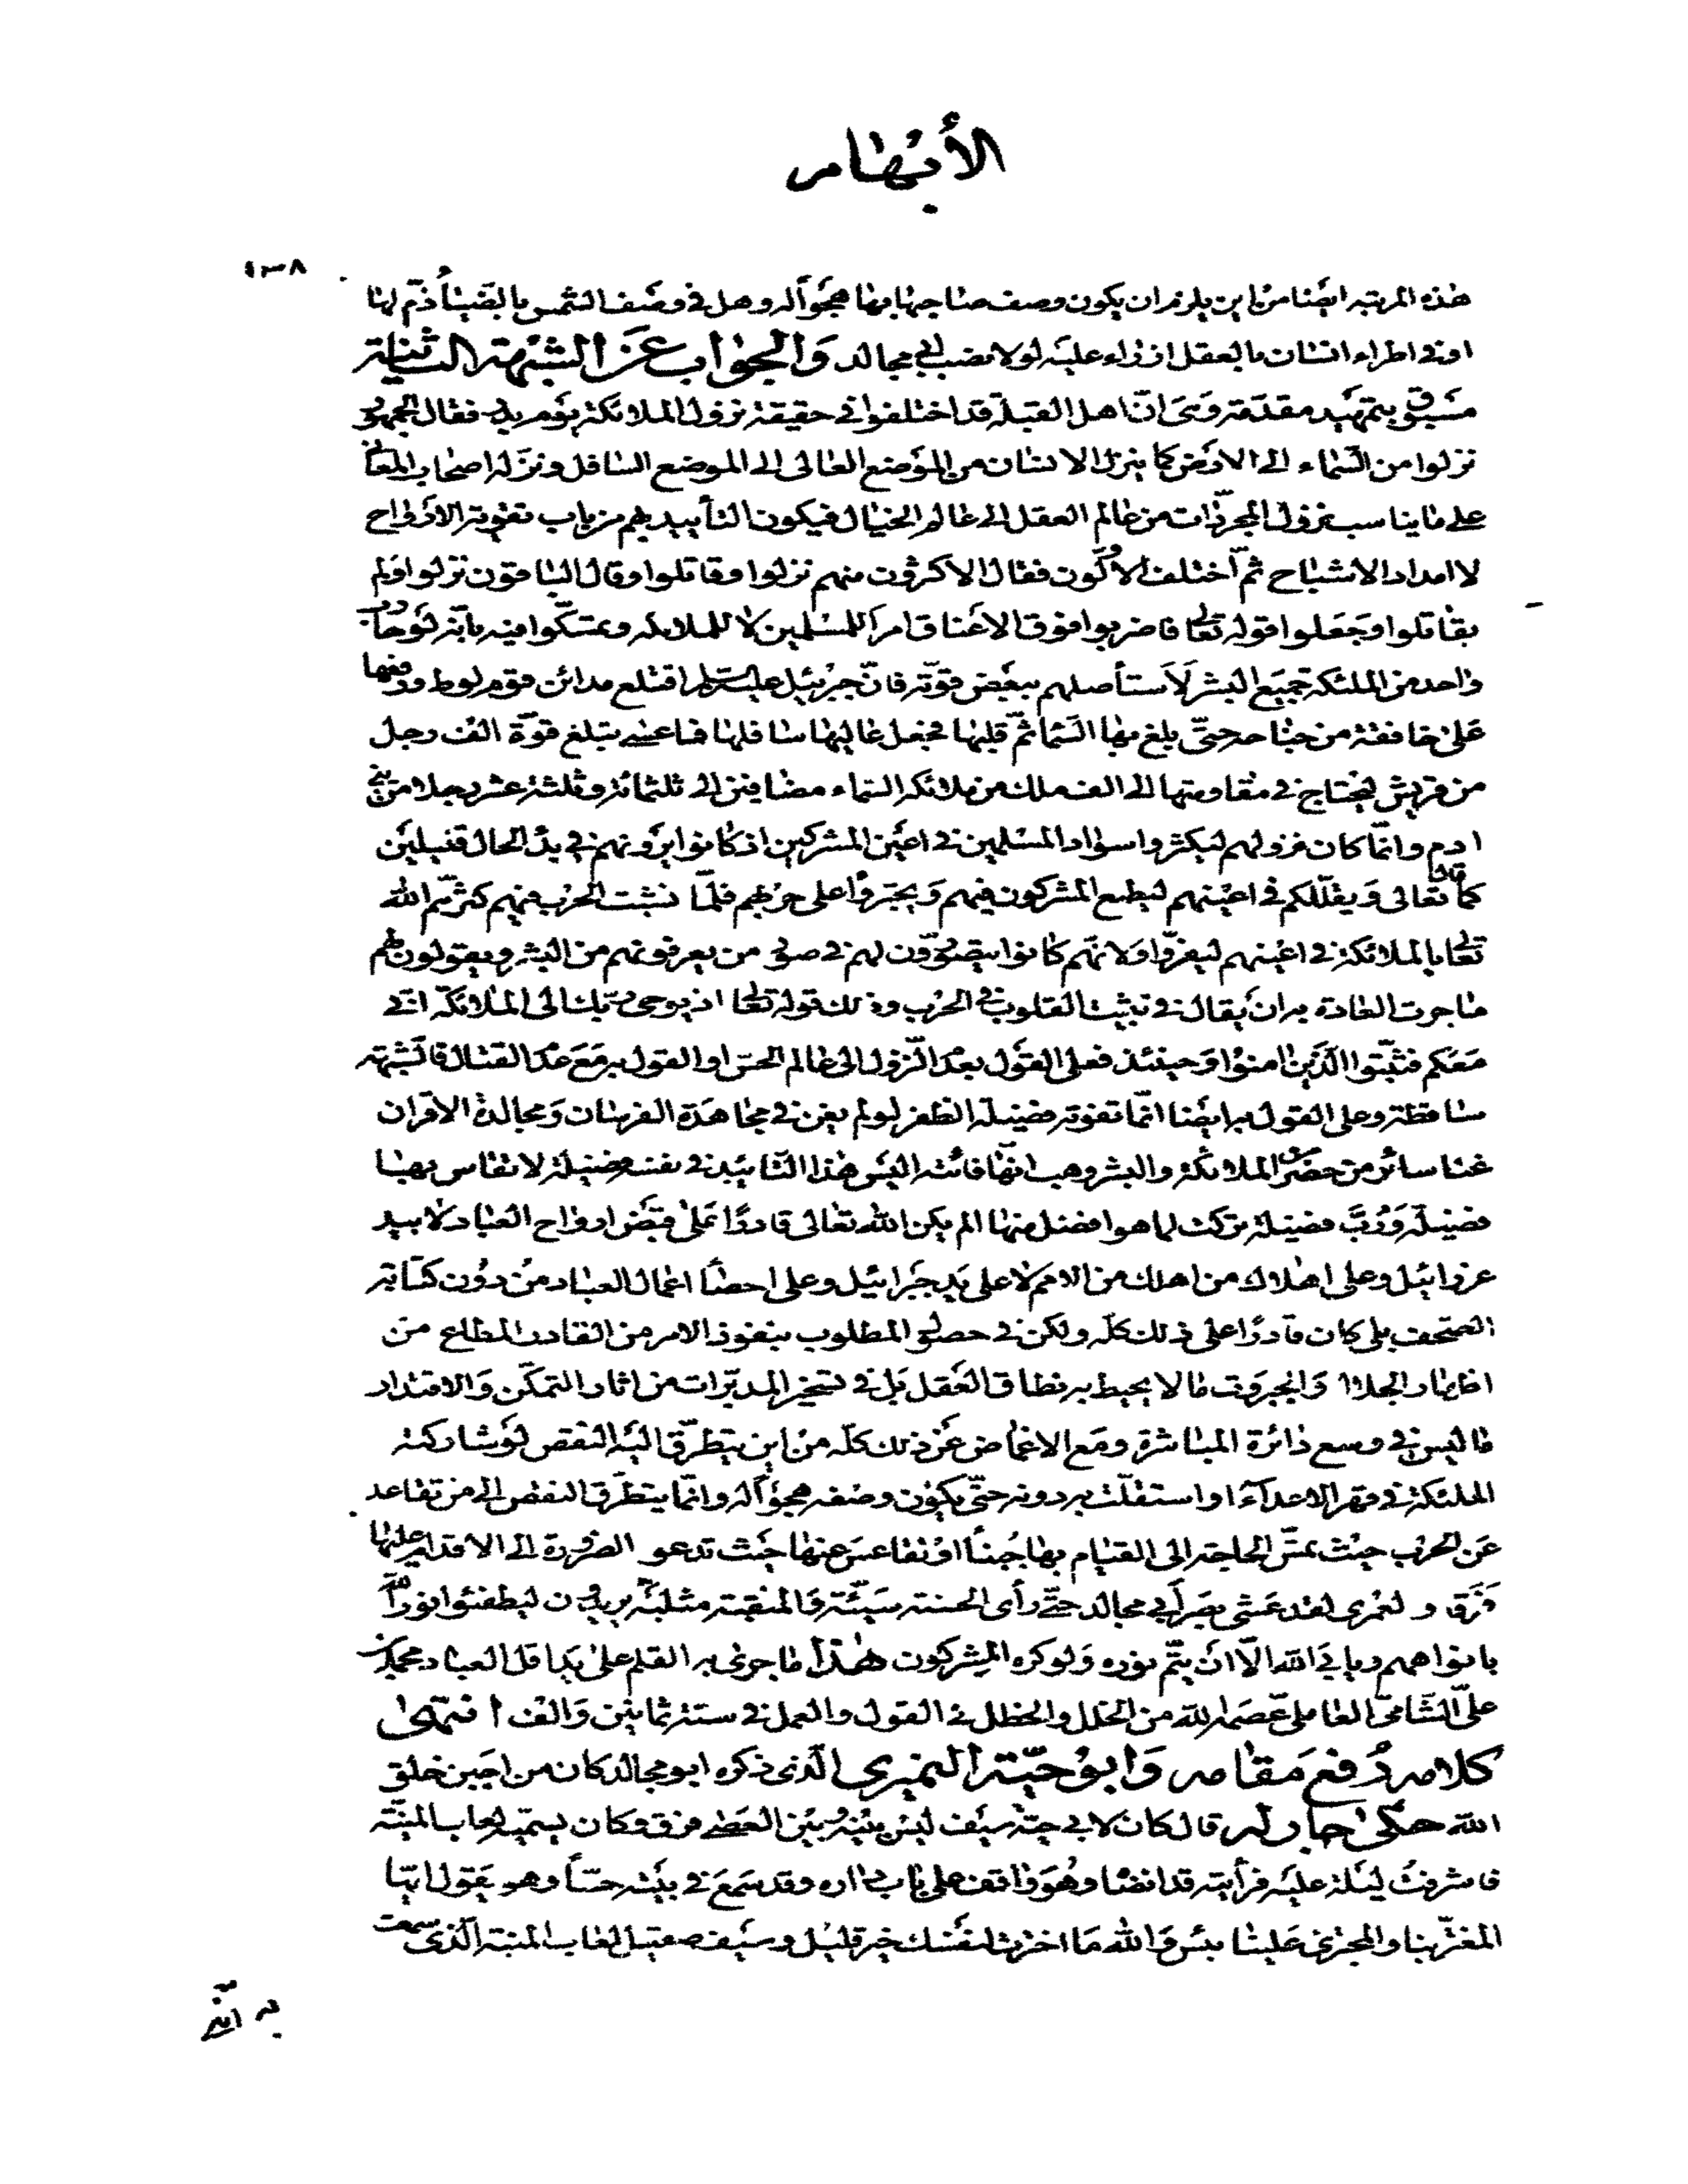 الأبهام
٤٣٨
هذه المرتبة ايضا من اين يلزم ان يكون وصف صاحبها بها هجوا له وهل في وصف الشمس بالضياء ذم لها
او في اطراء انسان بالعقل ازراء عليه لولا نصب ابي مجالد والجواب عن الشبهة الثانية
مسبوق بتمهيد مقدمة وهي ان اهل القبلة قد اختلفوا في حقيقة نزول الملائكة يوم بدر فقال الجمهور
نزلوا من السماء الى الارض كما ينزل الانسان من الموضع العالى الى الموضع السافل ونزله اصحاب المعاني
على ما يناسب نزول المجردات من عالم العقل الى عالم الخيال فيكون التأييد بهم من باب تقوية الارواح
لا امداد الاشباح ثم اختلف الاولون فقال الاكثرون منهم نزلوا وقاتلوا وقال الباقون نزلوا ولم
يقاتلوا وجعلوا قوله تعالى فاضربوا فوق الاعناق امرا للمسلمين لا للملائكة وتمسكوا فيه بانه لو حارب
واحد من الملئكة جميع البشر لاستأصلهم ببعض قوته فان جبرئيل عليه السلم اقتلع مدائن قوم لوط ورفعها
على خافقة من جناحه حتى بلغ بها السما ثم قلبها فجعل عاليها سافلها فما عسى تبلغ قوة الف رجل
من قريش ليحتاج في مقاومتها الى الف ملك من ملائكة السماء مضافين الى ثلثمائة وثلثة عشر رجلا من بني
ادم وانما كان نزولهم ليكثروا سواد المسلمين في اعين المشركين اذ كانوا يرونهم في بدء الحال قليلين
كما قال تعالى ويقللكم في اعينهم ليطمع المشركون فيهم ويجترؤا على حربهم فلما نشبت الحرب بينهم كثرهم الله
تعالى بالملائكة في اعينهم ليفروا ولانهم كانوا يتصورون لهم في صور من يعرفونهم من البشر ويقولون لهم
ما جرت العادة به ان يقال في تثبيت القلوب في الحرب وذلك قوله تعالى اذ يوحى ربك الى الملائكة انى
معكم فثبتوا الذين امنوا وحينئذ فعلى القول بعدم النزول الى عالم الحس او القول به مع عدم القتال فالشبهة
ساقطة وعلى القول به ايضا انما تفوته فضيلة الظفر لو لم يغن في مجاهدة الفرسان ومجالدة الاقران
غنا سائر من حضر من الملائكة والبشر وهب انها فاتته اليس هذا التاييد في نفسه فضيلة لا تقاس بها
فضيلة ورب فضيلة تركت لما هو افضل منها الم يكن الله تعالى قادرا على قبض ارواح العباد لا بيد
عزرائيل وعلى اهلاك من اهلك من الامم لا على يد جبرائيل وعلى احصاء اعمال العباد من دون كتابة
الصحف بلى كان قادرا على ذلك كله ولكن في حصول المطلوب بنفوذ الامر من القادر المطاع من
اظهار الجلال والجبروت ما لا يحيط به نطاق العقل بل في تسخير المدبرات من اثار التمكن والاقتدار
ما ليس في وسع دائرة المباشرة ومع الاغماض عن ذلك كله من اين يتطرق اليه النقص لو شاركته
الملئكة في قهر الاعداء او استقلت به دونه حتى يكون وصفه هجوا له وانما يتطرق النقص الى من تقاعد
عن الحرب حيث تمس الحاجة الى القيام بها جبنا او تقاعس عنها حيث تدعو الضرورة الى الاقدام عليها
فرقا ولعمرى لقد عشى بصر ابي مجالد حتى رأى الحسنة سيئة والمنقبة مثلبة يريدون ليطفئوا نور الله
بافواههم ويابى الله الا ان يتم نوره ولو كره المشركون هذا ما جرى به القلم على يد اقل العباد محمد بن
على الشامى العاملى عصمه الله من الخلل والخطل في القول والعمل في سنة ثمانين والف انتهى
كلامه رفع مقامه وابو حية النميرى الذى ذكره ابو مجالد كان من اجبن خلق
الله حكى جار له قال كان لابي حية سيف ليس بينه وبين العصى فرق وكان يسميه لعاب المنية
فاشرفت ليلة عليه فرأيته قد انتضا وهو واقف على باب داره وقد سمع في بيته حسا وهو يقول ايها
المغتر بنا والمجترى علينا بئس والله ما اخترت لنفسك خير قليل وسيف صقيل لعاب المنية الذى سمعت
به انى